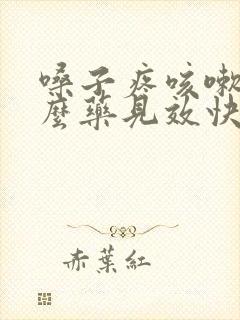 嗓子疼咳嗽
麼藥見效快
赤葉紅